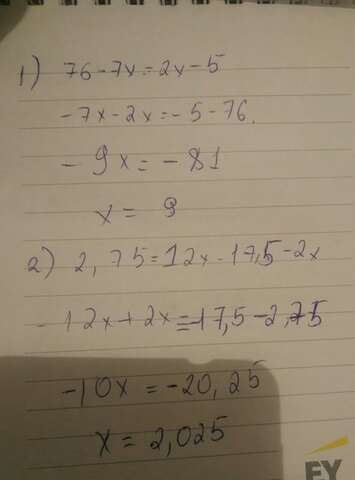 1) 76-7x=2x-5
-7x-2x=-5-76.
-9x=-81
x= 9
2) 2,75=12x-17,5-2x
-12x+2x=-17,5-2,75
-10x=-20,25
x=2,025
EY